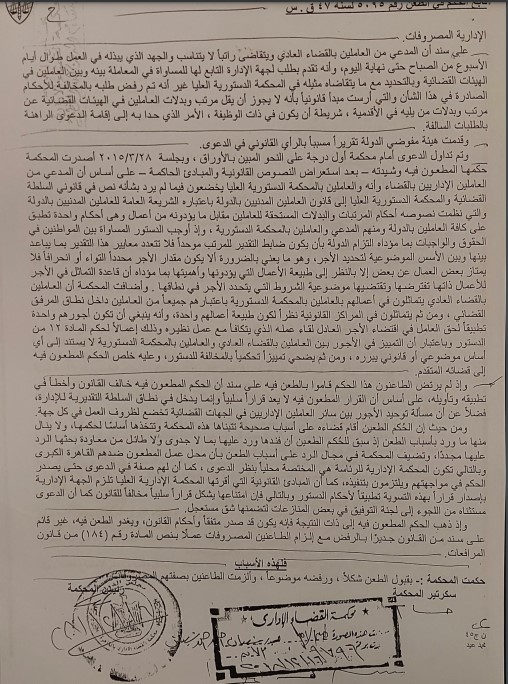 تابع الحكم في الطعن رقم ٥٠٩٥ لسنة ٤٧ ق . س
الإدارية المصروفات.
علي سند أن المدعي من العاملين بالقضاء العادي ويتقاضى راتباً لا يتناسب والجهد الذي يبذله في العمل طوال أيام
الأسبوع من الصباح حتى نهاية اليوم، وأنه تقدم بطلب لجهة الإدارة التابع لها للمساواة في المعاملة بينه وبين العاملين في
الهيئات القضائية وبالتحديد مع ما يتقاضاه مثيله في المحكمة الدستورية العليا غير أنه تم رفض طلبه بالمخالفة للأحكام
الصادرة في هذا الشأن والتي أرست مبدأ قانونياً بأنه لا يجوز أن يقل مرتب وبدلات العاملين في الهيئات القضائية عن
مرتب وبدلات من يليه في الأقدمية ، شريطة أن يكون في ذات الوظيفة ، الأمر الذي حدا به إلى إقامة الدعوى الراهنة
بالطلبات السالفة.
وقدمت هيئة مفوضي الدولة تقريراً مسبباً بالرأي القانوني في الدعوى.
وتم تداول الدعوى أمام محكمة أول درجة على النحو المبين بالأوراق ، وبجلسة ٢٠١٥/٣/٢٨ أصدرت المحكمة
حكمها المطعون فيه وشيدته – بعد استعراض النصوص القانونية والمبادئ الحاكمة – على أساس أن المدعي من
العاملين الإداريين بالقضاء وأنه والعاملين بالمحكمة الدستورية العليا يخضعون فيما لم يرد بشأنه نص في قانوني السلطة
القضائية والمحكمة الدستورية العليا إلى قانون العاملين المدنيين بالدولة باعتباره الشريعة العامة للعاملين المدنيين بالدولة
والتي نظمت نصوصه أحكام المرتبات والبدلات المستحقة للعاملين مقابل ما يؤدونه من أعمال وهى أحكام واحدة تطبق
على كافة العاملين بالدولة ومنهم المدعي والعاملين بالمحكمة الدستورية ، وإذ أوجب الدستور المساواة بين المواطنين في
الحقوق والواجبات بما مؤداه التزام الدولة بأن يكون ضابط التقدير للمرتب موحداً فلا تتعدد معايير هذا التقدير بما يباعد
بينها وبين الأسس الموضوعية لتحديد الأجر، وهو ما يعني بالضرورة ألا يكون مقدار الأجر محدداً التواء أو انحرافاً فلا
يمتاز بعض العمال عن بعض إلا بالنظر إلى طبيعة الأعمال التي يؤدونها وأهميتها بما مؤداه أن قاعدة التماثل في الأجر
للأعمال ذاتها تفترضها وتقتضيها موضوعية الشروط التي يتحدد الأجر في نطاقها . وأضافت المحكمة أن العاملين
بالقضاء العادي يتماثلون في أعمالهم بالعاملين بالمحكمة الدستورية باعتبارهم جميعاً من العاملين داخل نطاق المرفق
القضائي ، ومن ثم يتماثلون في المراكز القانونية نظراً لكون طبيعة أعمالهم واحدة، وأنه ينبغي أن تكون أجورهم واحدة
تطبيقاً لحق العامل في اقتضاء الأجر العادل لقاء عمله الذي يتكافأ مع عمل نظيره وذلك إعمالاً لحكم المادة ١٢ من
الدستور وباعتبار أن التمييز في الأجور بين العاملين بالقضاء العادي والعاملين بالمحكمة الدستورية لا يستند إلى أي
أساس موضوعي أو قانوني يبرره ، ومن ثم يضحي تمييزاً تحكمياً بالمخالفة للدستور، وعليه خلص الحكم المطعون فيه
إلى قضائه المتقدم.
وإذ لم يرتض الطاعنون هذا الحكم فأقاموا بالطعن فيه على سند أن الحكم المطعون فيه خالف القانون وأخطأ في
تطبيقه وتأويله، على أساس أن القرار المطعون فيه لا يعد قراراً سلبياً وإنما يدخل في نطاق السلطة التقديرية للإدارة،
فضلاً عن أن مسألة توحيد الأجور بين سائر العاملين الإداريين في الجهات القضائية تخضع لظروف العمل في كل جهة.
ومن حيث إن الحكم الطعين أقام قضاءه على أسباب صحيحة تتبناها هذه المحكمة وتتخذها أساساً لحكمها، ولا ينال
منها ما ورد بأسباب الطعن إذ سبق للحكم الطعين أن فندها ورد عليها بما لا جدوى ولا طائل من معاودة بحثها الرد
عليها مجدداً، وتضيف المحكمة في مجال الرد على أسباب الطعن بأن محل عمل المطعون ضدهم القاهرة الكبرى
وبالتالي تكون المحكمة الإدارية للرئاسة هي المختصة محلياً بنظر الدعوى ، كما أن لهم صفة في الدعوى حتى يصدر
الحكم في مواجهتهم ويلتزمون بتنفيذه، كما أن المبادئ القانونية التي أقرتها المحكمة الإدارية العليا تلزم الجهة الإدارية
بإصدار قراراً بهذه التسوية تطبيقاً لأحكام الدستور وبالتالي فإن امتناعها يشكل قراراً سلبياً مخالفاً للقانون كما أن الدعوى
مستثناه من اللجوء إلى لجنة التوفيق في بعض المنازعات لتضمنها شق مستعجل.
وإذ ذهب الحكم المطعون فيه إلى ذات النتيجة فإنه يكون قد صدر متفقاً وأحكام القانون، ويغدو الطعن فيه، غير قائم
على سند من القانون جديراً بالرفض مع إلزام الطاعنين المصروفات عملاً بنص المادة رقم (١٨٤) من قانون
المرافعات.
فلهذه الأسباب
حكمت المحكمة :- بقبول الطعن شكلاً ، ورفضه موضوعاً ، وألزمت الطاعنين بصفتهم المصروفات.
سكرتير المحكمة
رئيس المحكمة
محكمة القضاء الإداري